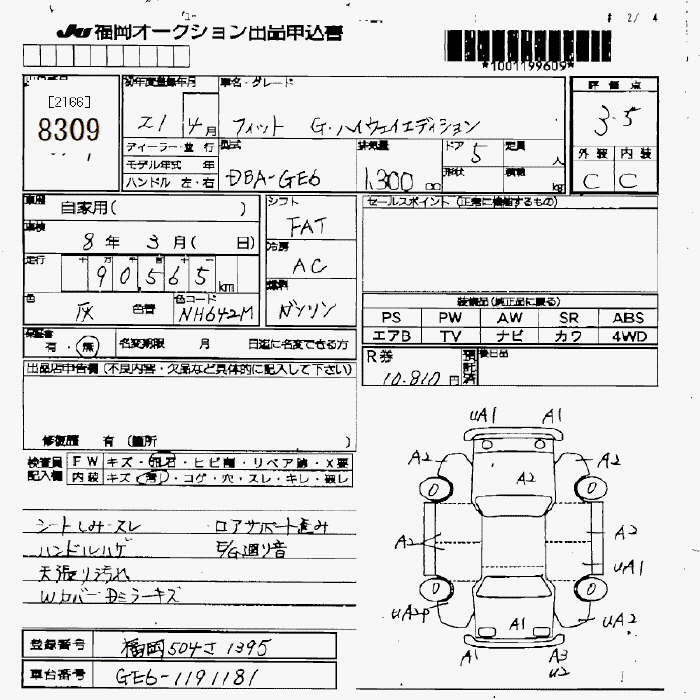 # 2/4
JU 福岡オークション出品申込書
*1001199609*
[2166]
8309
初年度登録年月
21 4月
車名・グレード
フィット G・ハイウェイエディション
評価点
3.5
外装 内装
C C
ディーラー・並行
モデル年式 年
ハンドル 左・右
型式
DBA-GE6
排気量
1,300 cc
ドア 5
形状
定員 人
積載 kg
車歴
自家用( )
車検
8年 3月( 日)
走行 十万千百十
90,565 km
色 灰 色替
色コード
NH642M
シフト
FAT
冷房
AC
燃料
ガソリン
セールスポイント (正常に機能するもの)
装備品(純正品に限る)
PS PW AW SR ABS
エアB TV ナビ カワ 4WD
保証書
有・無
名変期限 月 日迄に名変できる方
R券
10,810円
預託済
後日品
出品店申告欄(不良内容・欠品など具体的に記入して下さい)
修復歴 有(箇所 )
検査員記入欄
FW キズ・飛石・ヒビ割・リペア跡・X要
内装 キズ・コゲ・穴・スレ・キレ・破レ
シートしみ・スレ ロアサポート歪み
ハンドルハゲ E/G廻り音
天張り汚れ
Wカバー・Dミラーキズ
uA1 A1
A2 A2 A2
0 0
A2 A2
uA1
0 0
uA2P uA2
A1
A1 A3
u2
登録番号 福岡504さ1395
車台番号 GE6-1191181